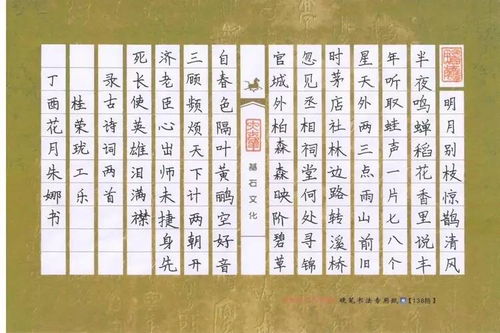 明月别枝惊鹊清风
半夜鸣蝉稻花香里说丰
年听取蛙声一片七八个
星天外两三点雨山前旧
时茅店社林边路转溪桥
忽见丞相祠堂何处寻锦
官城外柏森森映阶碧草
基石文化
自春色隔叶黄鹂空好音
三顾频烦天下计两朝开
济老臣心出师未捷身先
死长使英雄泪满襟
录古诗词两首
桂荣珑工乐
丁酉花月朱娜书
硬笔书法专用纸【136格】